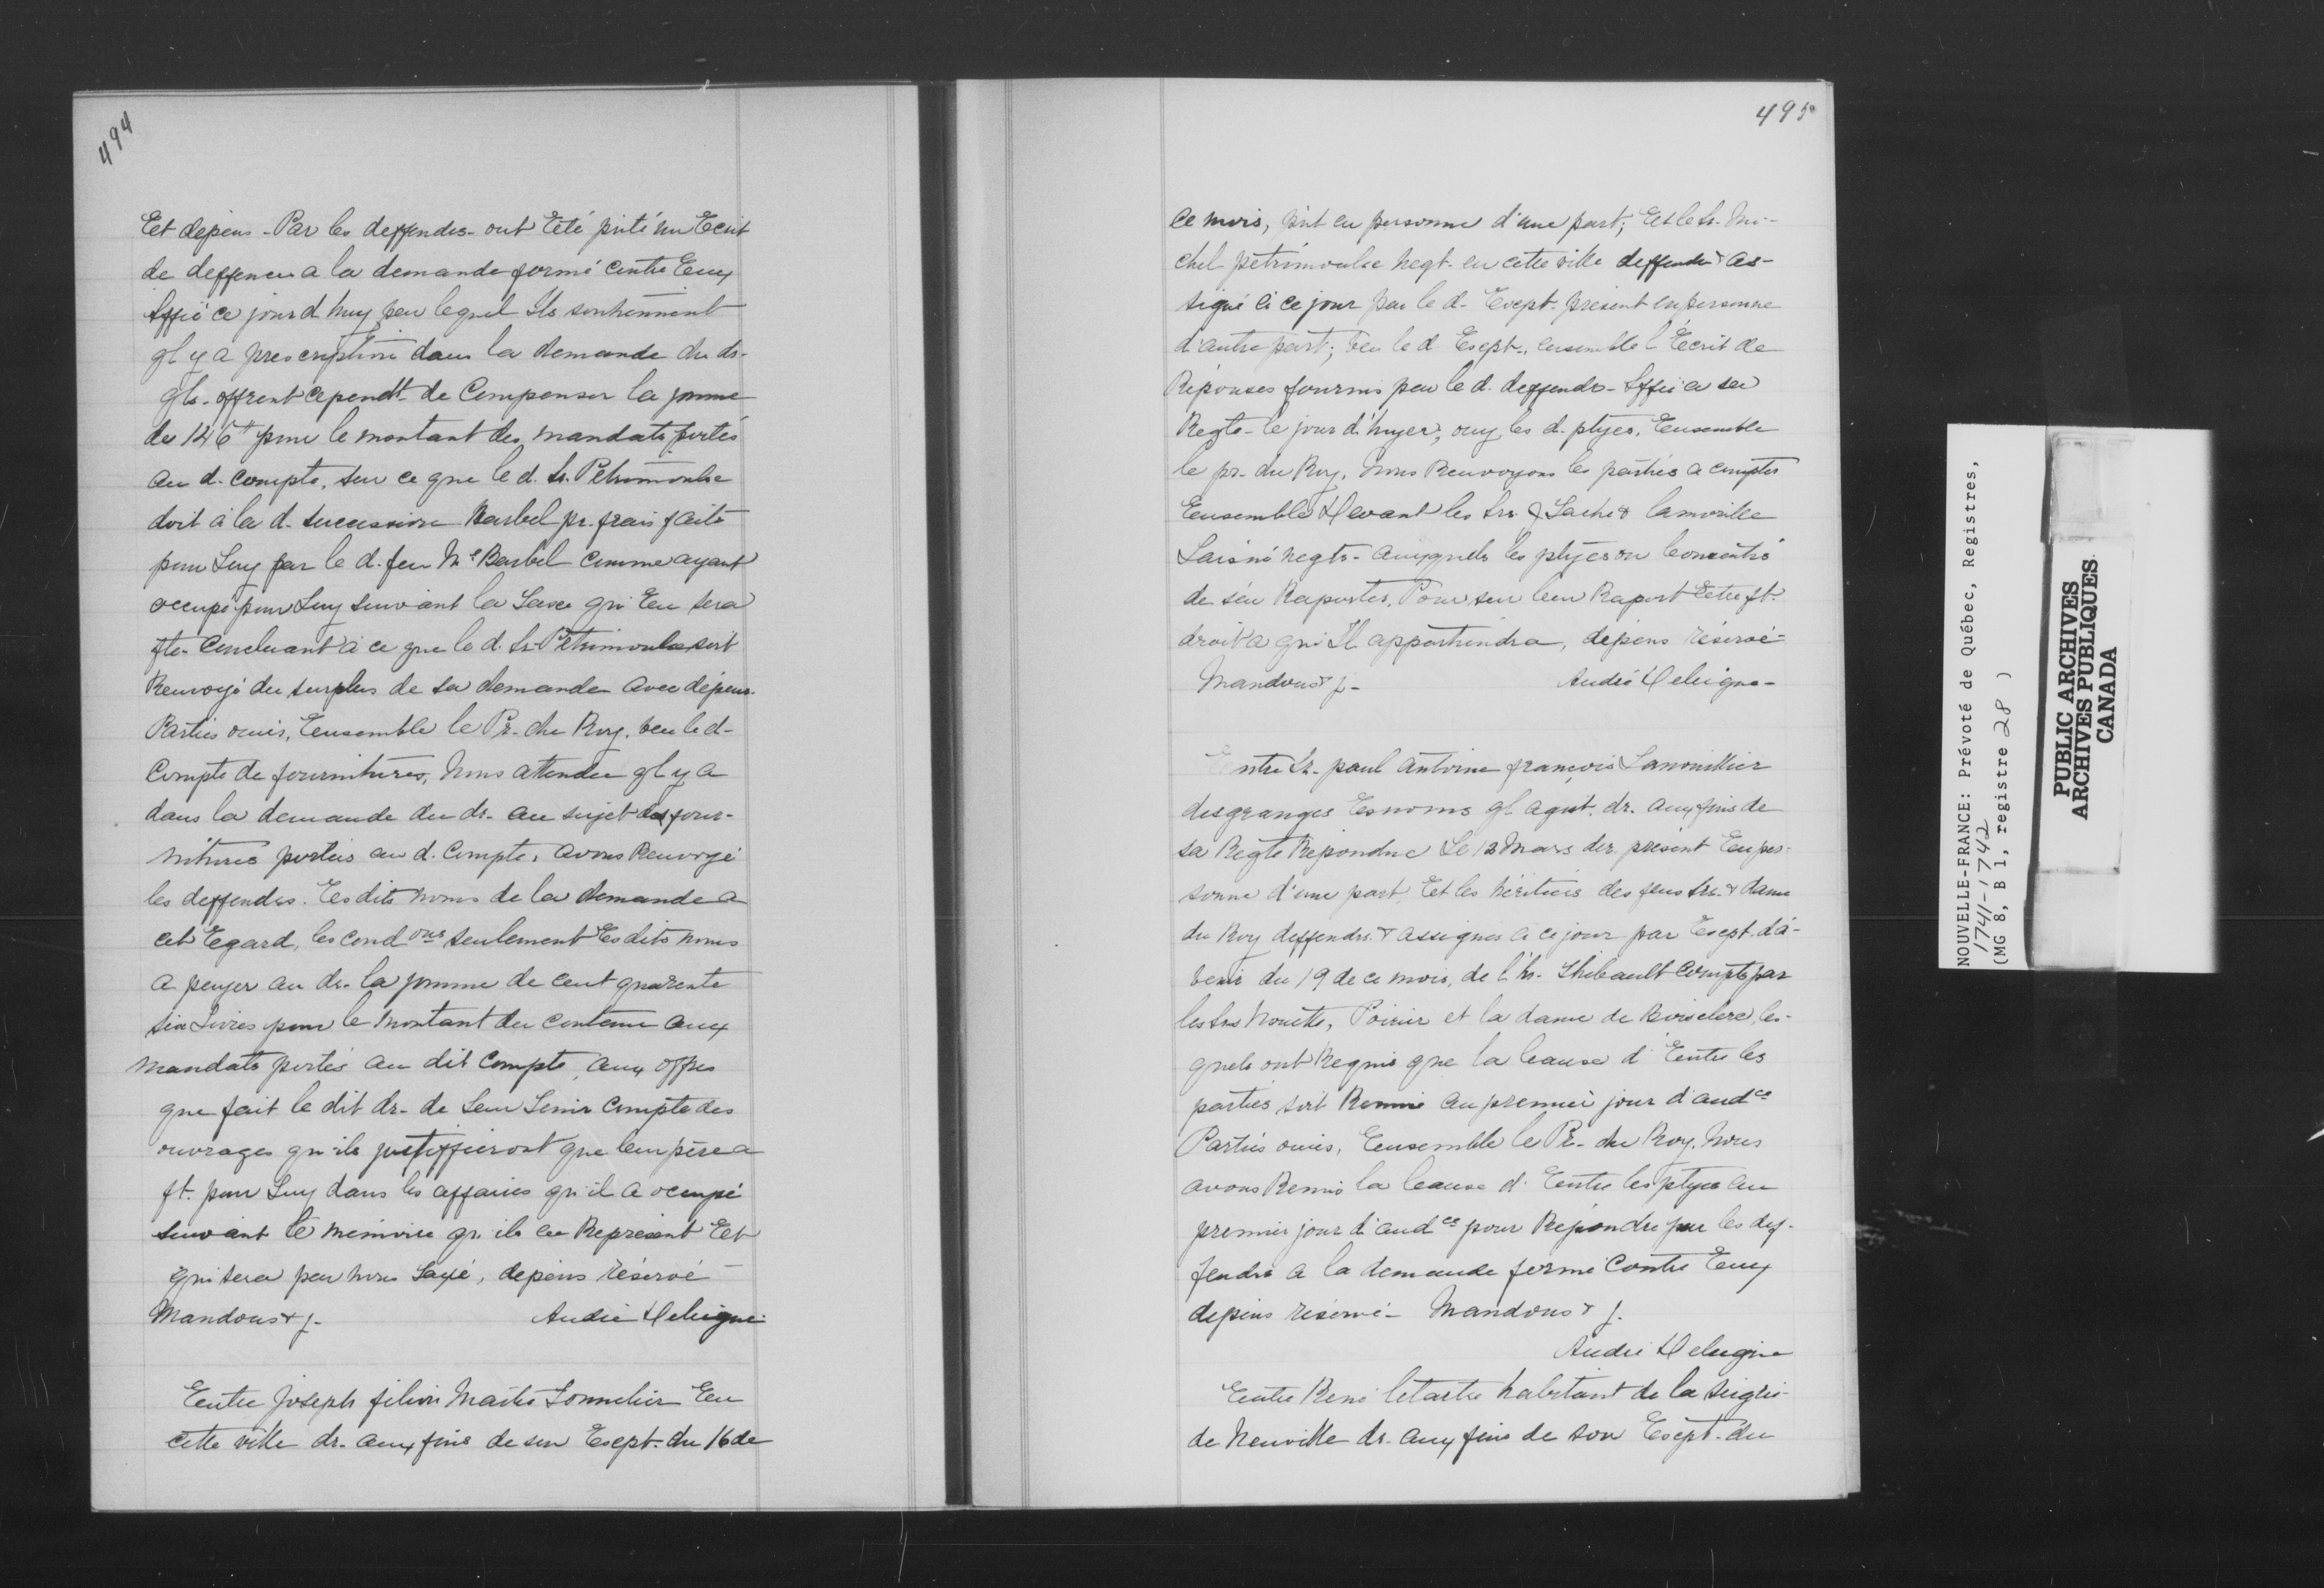 494
Et dépens - Par les deffendrs- ont Eété prité un Ecrit
de deffences a la demande formé contre Eux
Siffié ce jourd huy peu lequel Ils soutiennent
ql y a prescription dans la demande du dr-
qls- offrent cependt- de Compenser la somme
de 146# pour le montant des mandats portés
au d. compte, sur ce que le d. Sr. Petrimoulx
doit à la d. succession Barbel pr. frais faits
pour Luy par le d. feu Me Barbel comme ayant
occupé pour Luy suivant la Taxe qui Een sera
fte- Concluant à ce que le d. Sr- Pétrimoulx soit
Renvoyé du surplus de sa demande avec dépens-
Parties ouies, Eensemble le Pr- du Roy. veu le d-
Compte de fournitures, Nous attendu ql y a
dans la demande du dr- au sujet des four-
nitures portées au d. Compte, avons Renvoyé
les deffendrs. Ees dits noms de la demande a
cet Egard, les cond ons seulement Ees dits noms
a peyer au dr- la somme de cent quarente
six Livres pour le montant du contenu aux
mandats portés au dit Compte, aux offres
que fait le dit dr- de Leur Tenir Compte des
ouvrages qu'ils justiffieront que leur père a
ft. pour Luy dans les affaires qu'il a occupé
suivant le mémoire qu'ils en Represent Eet
qui sera peu nous Taxé, depens réservé -
Mandons & f-
André Deleigne-
Eentre Joseph filion Maitre Tonnelier Een
cette ville dr- aux fins de son Exept. du 16 de
495
ce mois, pnt en personne d'une part; Eet le Sr. Mi-
chel pétrimoulx negt- en cette ville deffendr & as-
signé à ce jour peu le d- Eexpt- présent en personne
d'autre part; veu le d Eexpt-, ensemble l'Eécrit de
Réponses fournis peu le d. deffendr- Siffié a sa
Reqte- le jour d'hyer, ouy les d. ptyes, Eensemble
le pr- du Roy, Nous Renvoyons les parties a compter
Eensemble Devant les Srs J Taché & lamorille
Laisné negts- auxquels les ptyes ou
de s'en Raporter, Pour sur leur Raport Eetre ft.
droit a qui Il appartiendra, dépens réservé-
Mandons & f-
André Deleigne-
Entre Sr- paul antoine françois Lanouillier
desgranges Ees noms ql agist. dr. aux fins de
sa Reqte Répondue Le 12 Mars der. présent Een per-
sonne d'une part, Eet les héritiers des feus Sr. & dame
du Roy deffendrs. & assignés à ce jour par Eexpt. d'à-
venir du 19 de ce mois, de l'hr- Thibault Compts par
les Srs Nouette, Poirier et la dame de Boisclerc, les-
quels ont Requis que la Cause d'Eentre les
parties soit Remise au premier jour d'audce
Parties ouies, Eensemble le Pr- du Roy, Nous
avons Remis la Cause d'Eentre les ptyes au
premier jour d'audce pour Répondre peu les def-
fendrs a la demande formé Contre Eeux
dépens réservé- Mandons & f.
André Deleigne
Eentre René letartre habitant de la seigrie-
de Neuville dr. aux fins de son Eexpt. du
NOUVELLE-FRANCE: Prévoté de Québec, Registres,
1741-1742
(MG 8, B 1, registre 28 )
PUBLIC ARCHIVES
ARCHIVES PUBLIQUES
CANADA